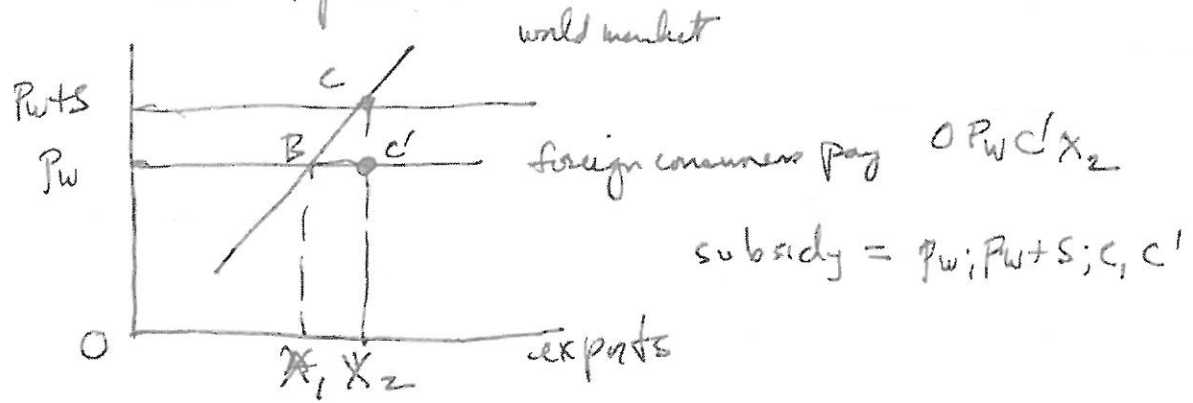 world market
Pw+s
C
Pw
B
C'
foreign consumers pay OPwC'X2
subsidy = Pw; Pw+S; C, C'
O
X1 X2
exports